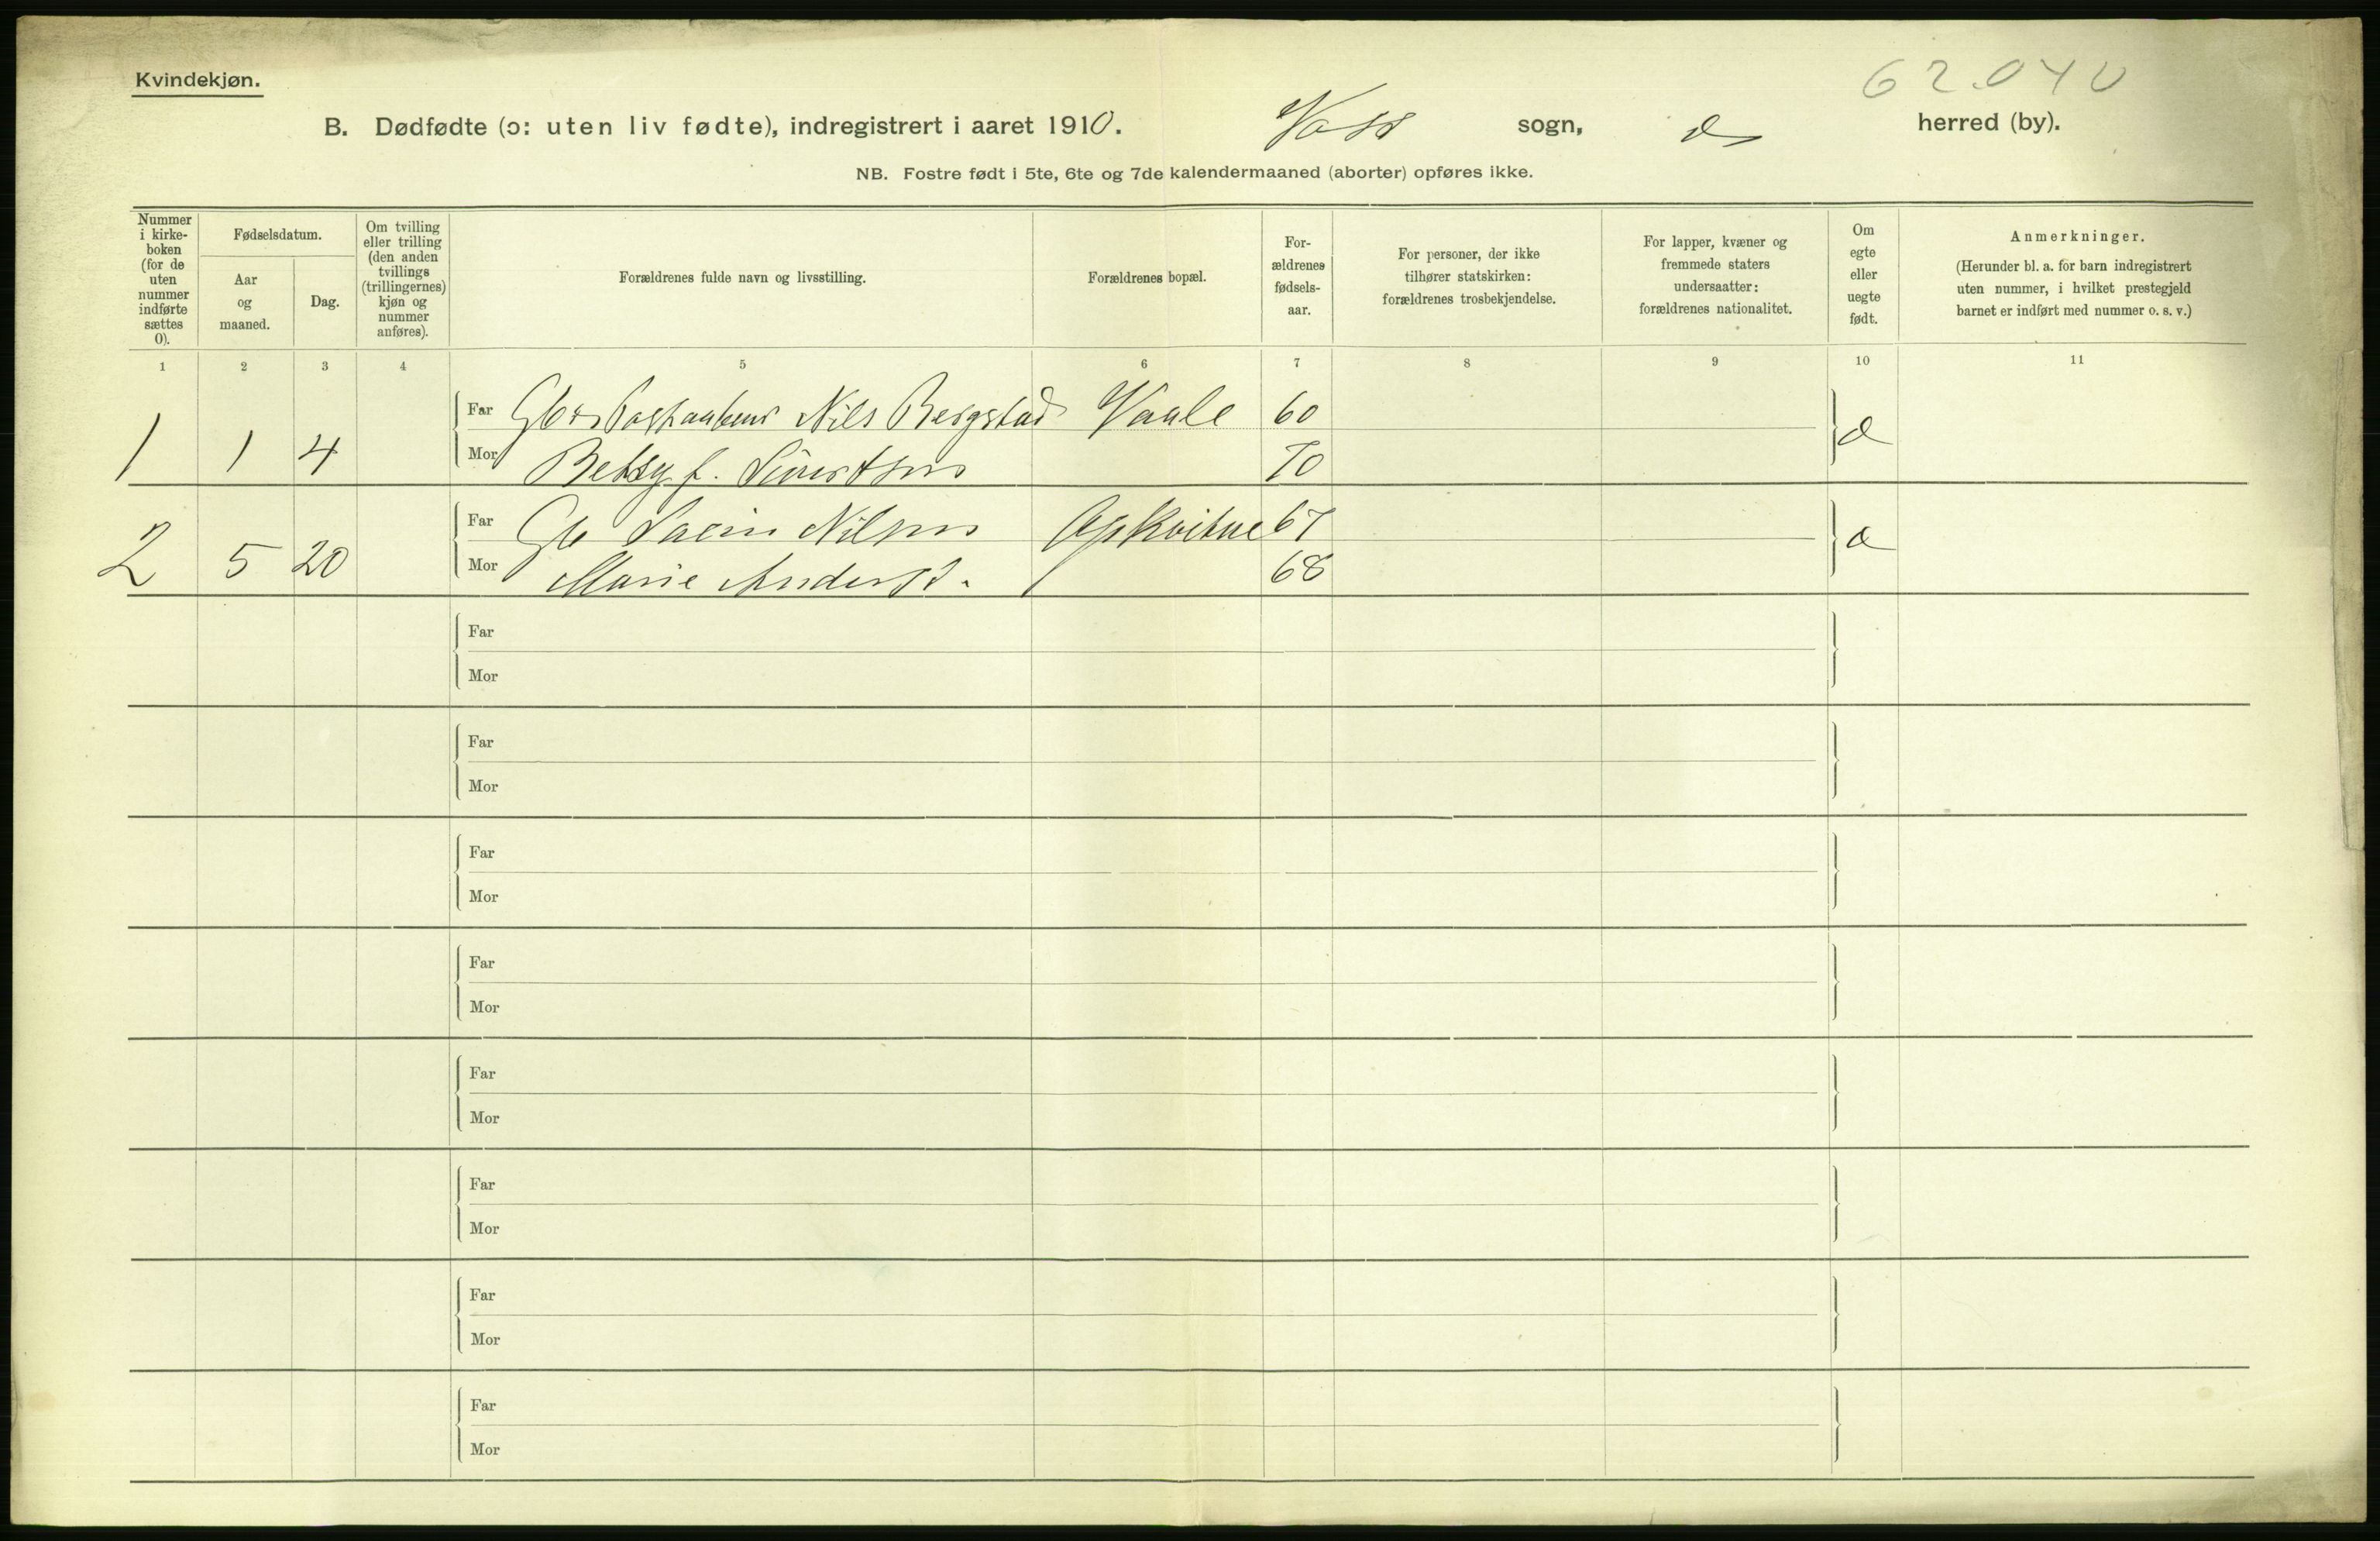 Kvindekjøn.
62.040
B. Dødfødte (ɔ: uten liv fødte), indregistrert i aaret 1910. Voss sogn, do herred (by).
NB. Fostre født i 5te, 6te og 7de kalendermaaned (aborter) opføres ikke.
Nummer i kirke-boken (for de uten nummer indførte sættes 0).
Fødselsdatum.
Aar og maaned.
Dag.
Om tvilling eller trilling (den anden tvillings (trillingernes) kjøn og nummer anføres).
Forældrenes fulde navn og livsstilling.
Forældrenes bopæl.
For-ældrenes fødsels-aar.
For personer, der ikke tilhører statskirken: forældrenes trosbekjendelse.
For lapper, kvæner og fremmede staters undersaatter: forældrenes nationalitet.
Om egte eller uegte født.
Anmerkninger.
(Herunder bl. a. for barn indregistrert uten nummer, i hvilket prestegjeld barnet er indført med nummer o. s. v.)
1 2 3 4 5 6 7 8 9 10 11
Far Nils Bergstad 60
1 1 4 Mor Betsy f. Sivertsen 70 æ
Far Gb Nilsen 67
2 5 20 Mor Marie Andersd. 68 æ
Far
Mor
Far
Mor
Far
Mor
Far
Mor
Far
Mor
Far
Mor
Far
Mor
Far
Mor